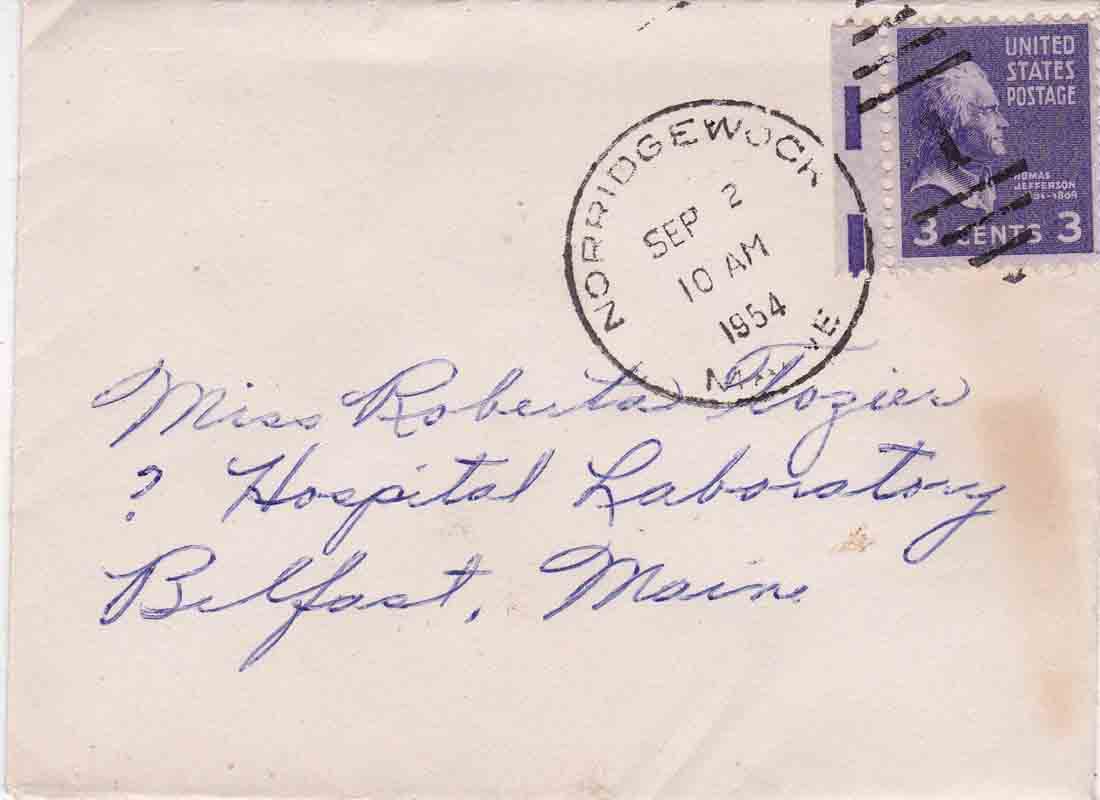 UNITED
STATES
POSTAGE
JEFFERSON
3 CENTS 3
NORRIDGEWOCK
SEP 2
10 AM
1954
MAINE
Miss Roberta Tozier
? Hospital Laboratory
Belfast, Maine